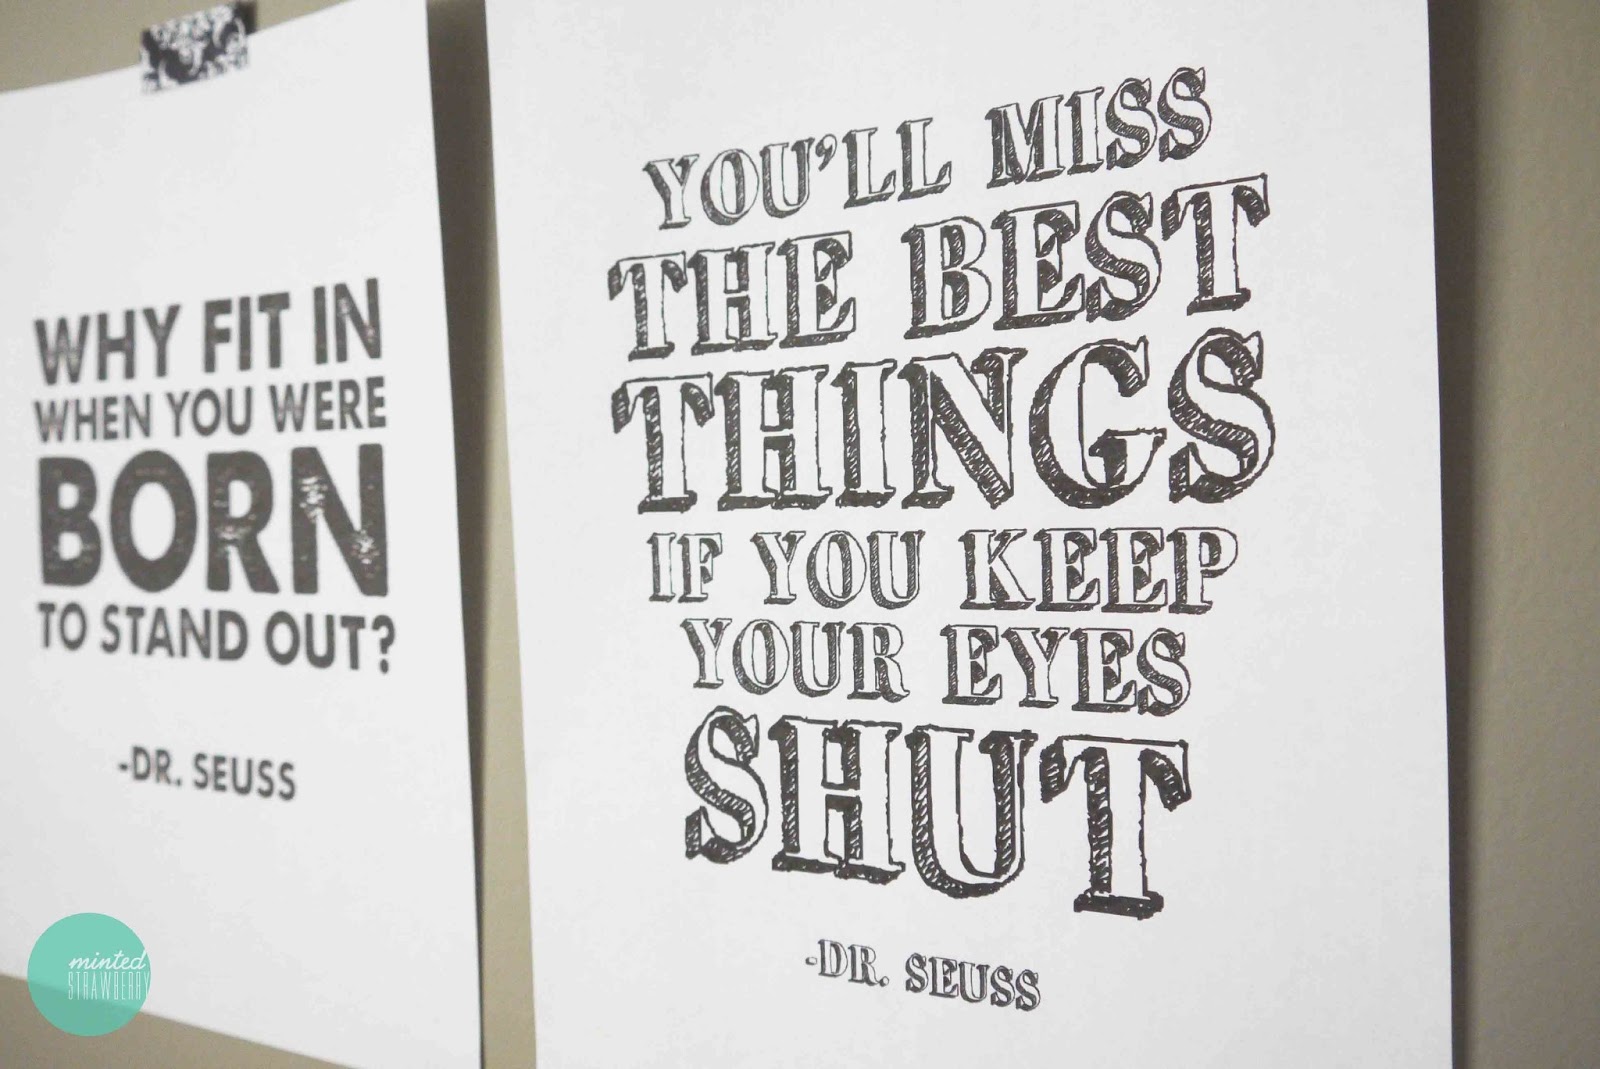 WHY FIT IN
WHEN YOU WERE
BORN
TO STAND OUT?
-DR. SEUSS
YOU'LL MISS
THE BEST
THINGS
IF YOU KEEP
YOUR EYES
SHUT
-DR. SEUSS
minted
STRAWBERRY